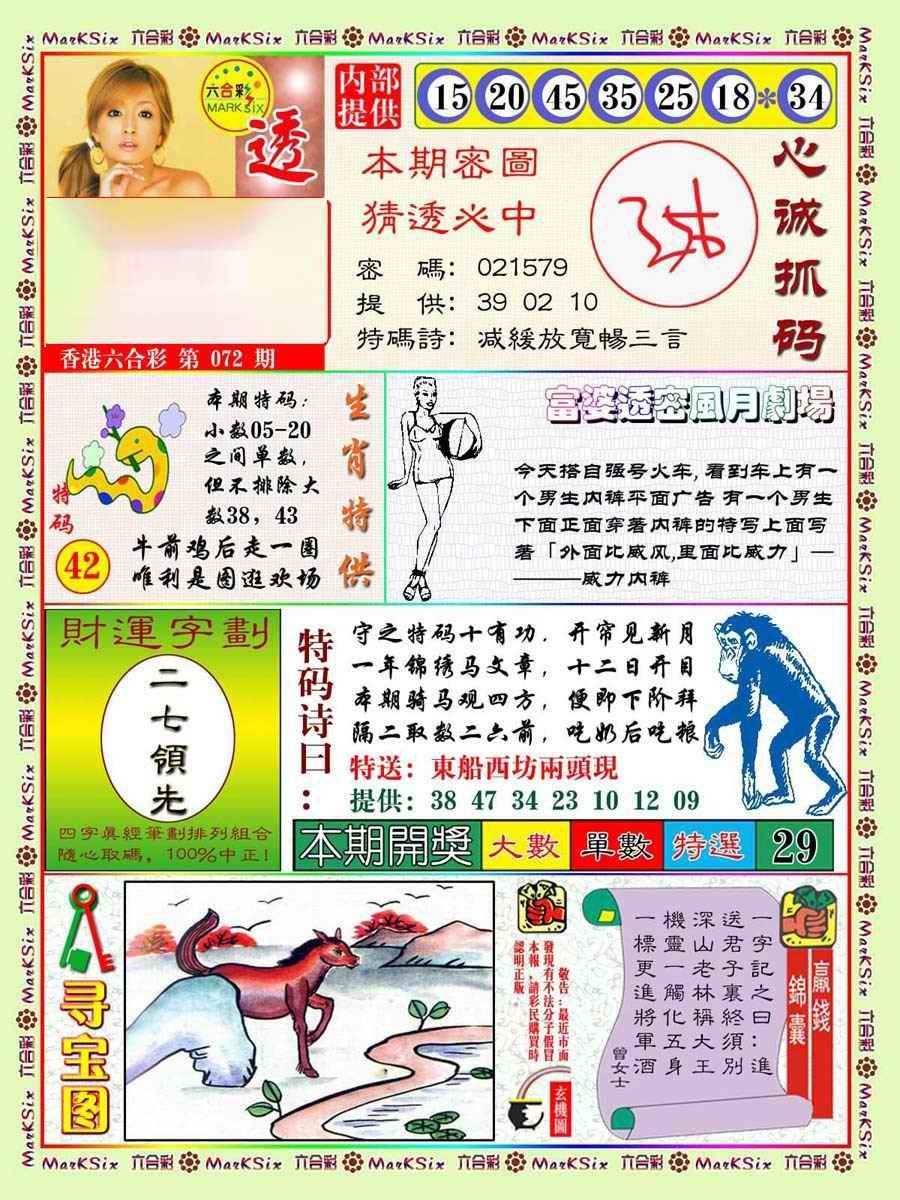 MarKSix 六合彩 MarKSix 六合彩 MarKSix 六合彩 MarKSix 六合彩 MarKSix 六合彩
六合彩
MARK SIX
透
内部
提供
15 20 45 35 25 18 * 34
本期密圖
猜透必中
心诚抓码
密 碼: 021579
提 供: 39 02 10
特碼詩: 减緩放寬暢三言
香港六合彩 第 072 期
本期特码:
小数05-20
之间单数,
但不排除大
数38, 43
生肖特供
特码
42
牛前鸡后走一圈
唯利是图逛欢场
富婆透密風月劇場
今天搭自强号火车, 看到车上有一
个男生内裤平面广告 有一个男生
下面正面穿着内裤的特写上面写
著「外面比威风,里面比威力」—
———威力内裤
財運字劃
二七領先
四字真經筆劃排列組合
隨心取碼, 100%中正!
特码诗曰:
守之特码十有功, 开帘见新月
一年锦绣马文章, 十二日开目
本期骑马观四方, 便即下阶拜
隔二取数二六前, 吃奶后吃粮
特送: 東船西坊兩頭現
提供: 38 47 34 23 10 12 09
本期開獎 大數 單數 特選 29
寻宝图
敬告:最近市面
發現有不法分子假冒
本報,請彩民購買時
認明正版。
玄機圖
贏錢
錦囊
一字記之曰:進
送君子裏終須別
深山老林稱大王
機靈一觸化五身
一標更進將軍酒
曾女士
MarKSix 六合彩 MarKSix 六合彩 MarKSix 六合彩 MarKSix 六合彩 MarKSix 六合彩